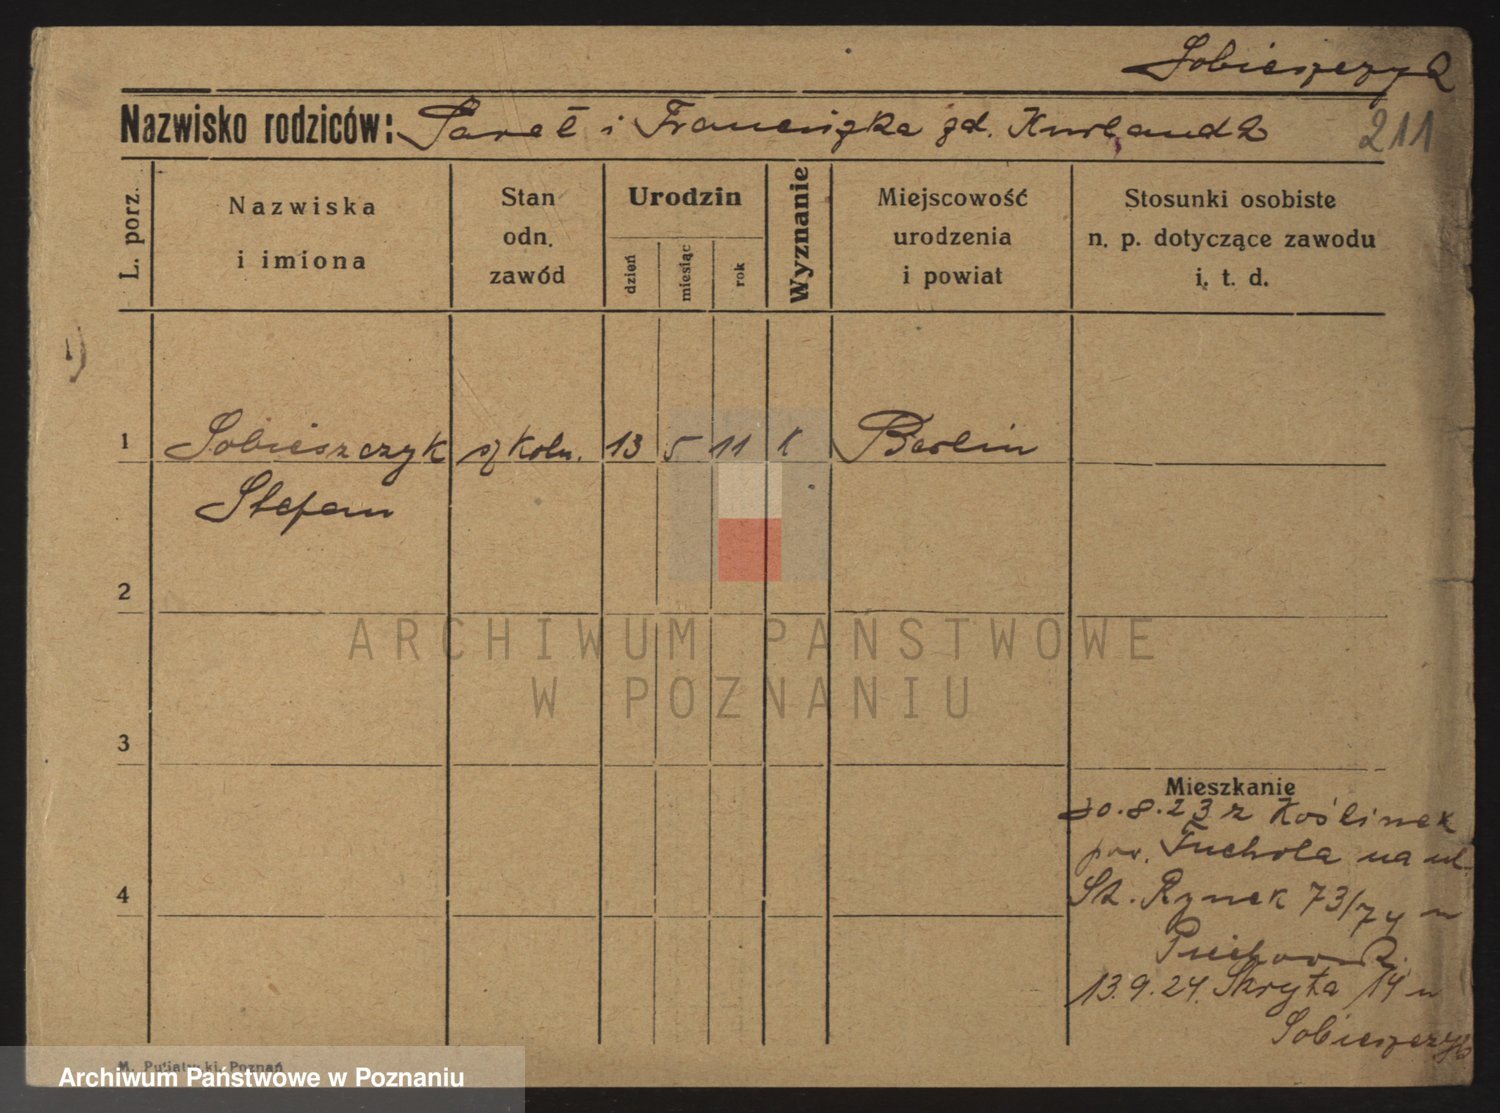 Sobieszczyk
Nazwisko rodziców: Paweł i Franciszka zd. Kurlandt
211
L. porz.
Nazwiska
i imiona
Stan
odn.
zawód
Urodzin
dzień
miesiąc
rok
Wyznanie
Miejscowość
urodzenia
i powiat
Stosunki osobiste
n. p. dotyczące zawodu
i. t. d.
1)
1 Sobieszczyk szkoln. 13 5 11 k Berlin
Stefan
2
3
4
Mieszkanie
30.8.23 z Koślinek
pow. Tuchola na ul.
St. Rynek 73/74 u
13.9.24. Skryta 14 u
Sobieszczyk
M. Putiatycki, Poznań
ARCHIWUM PAŃSTWOWE
W POZNANIU
Archiwum Państwowe w Poznaniu